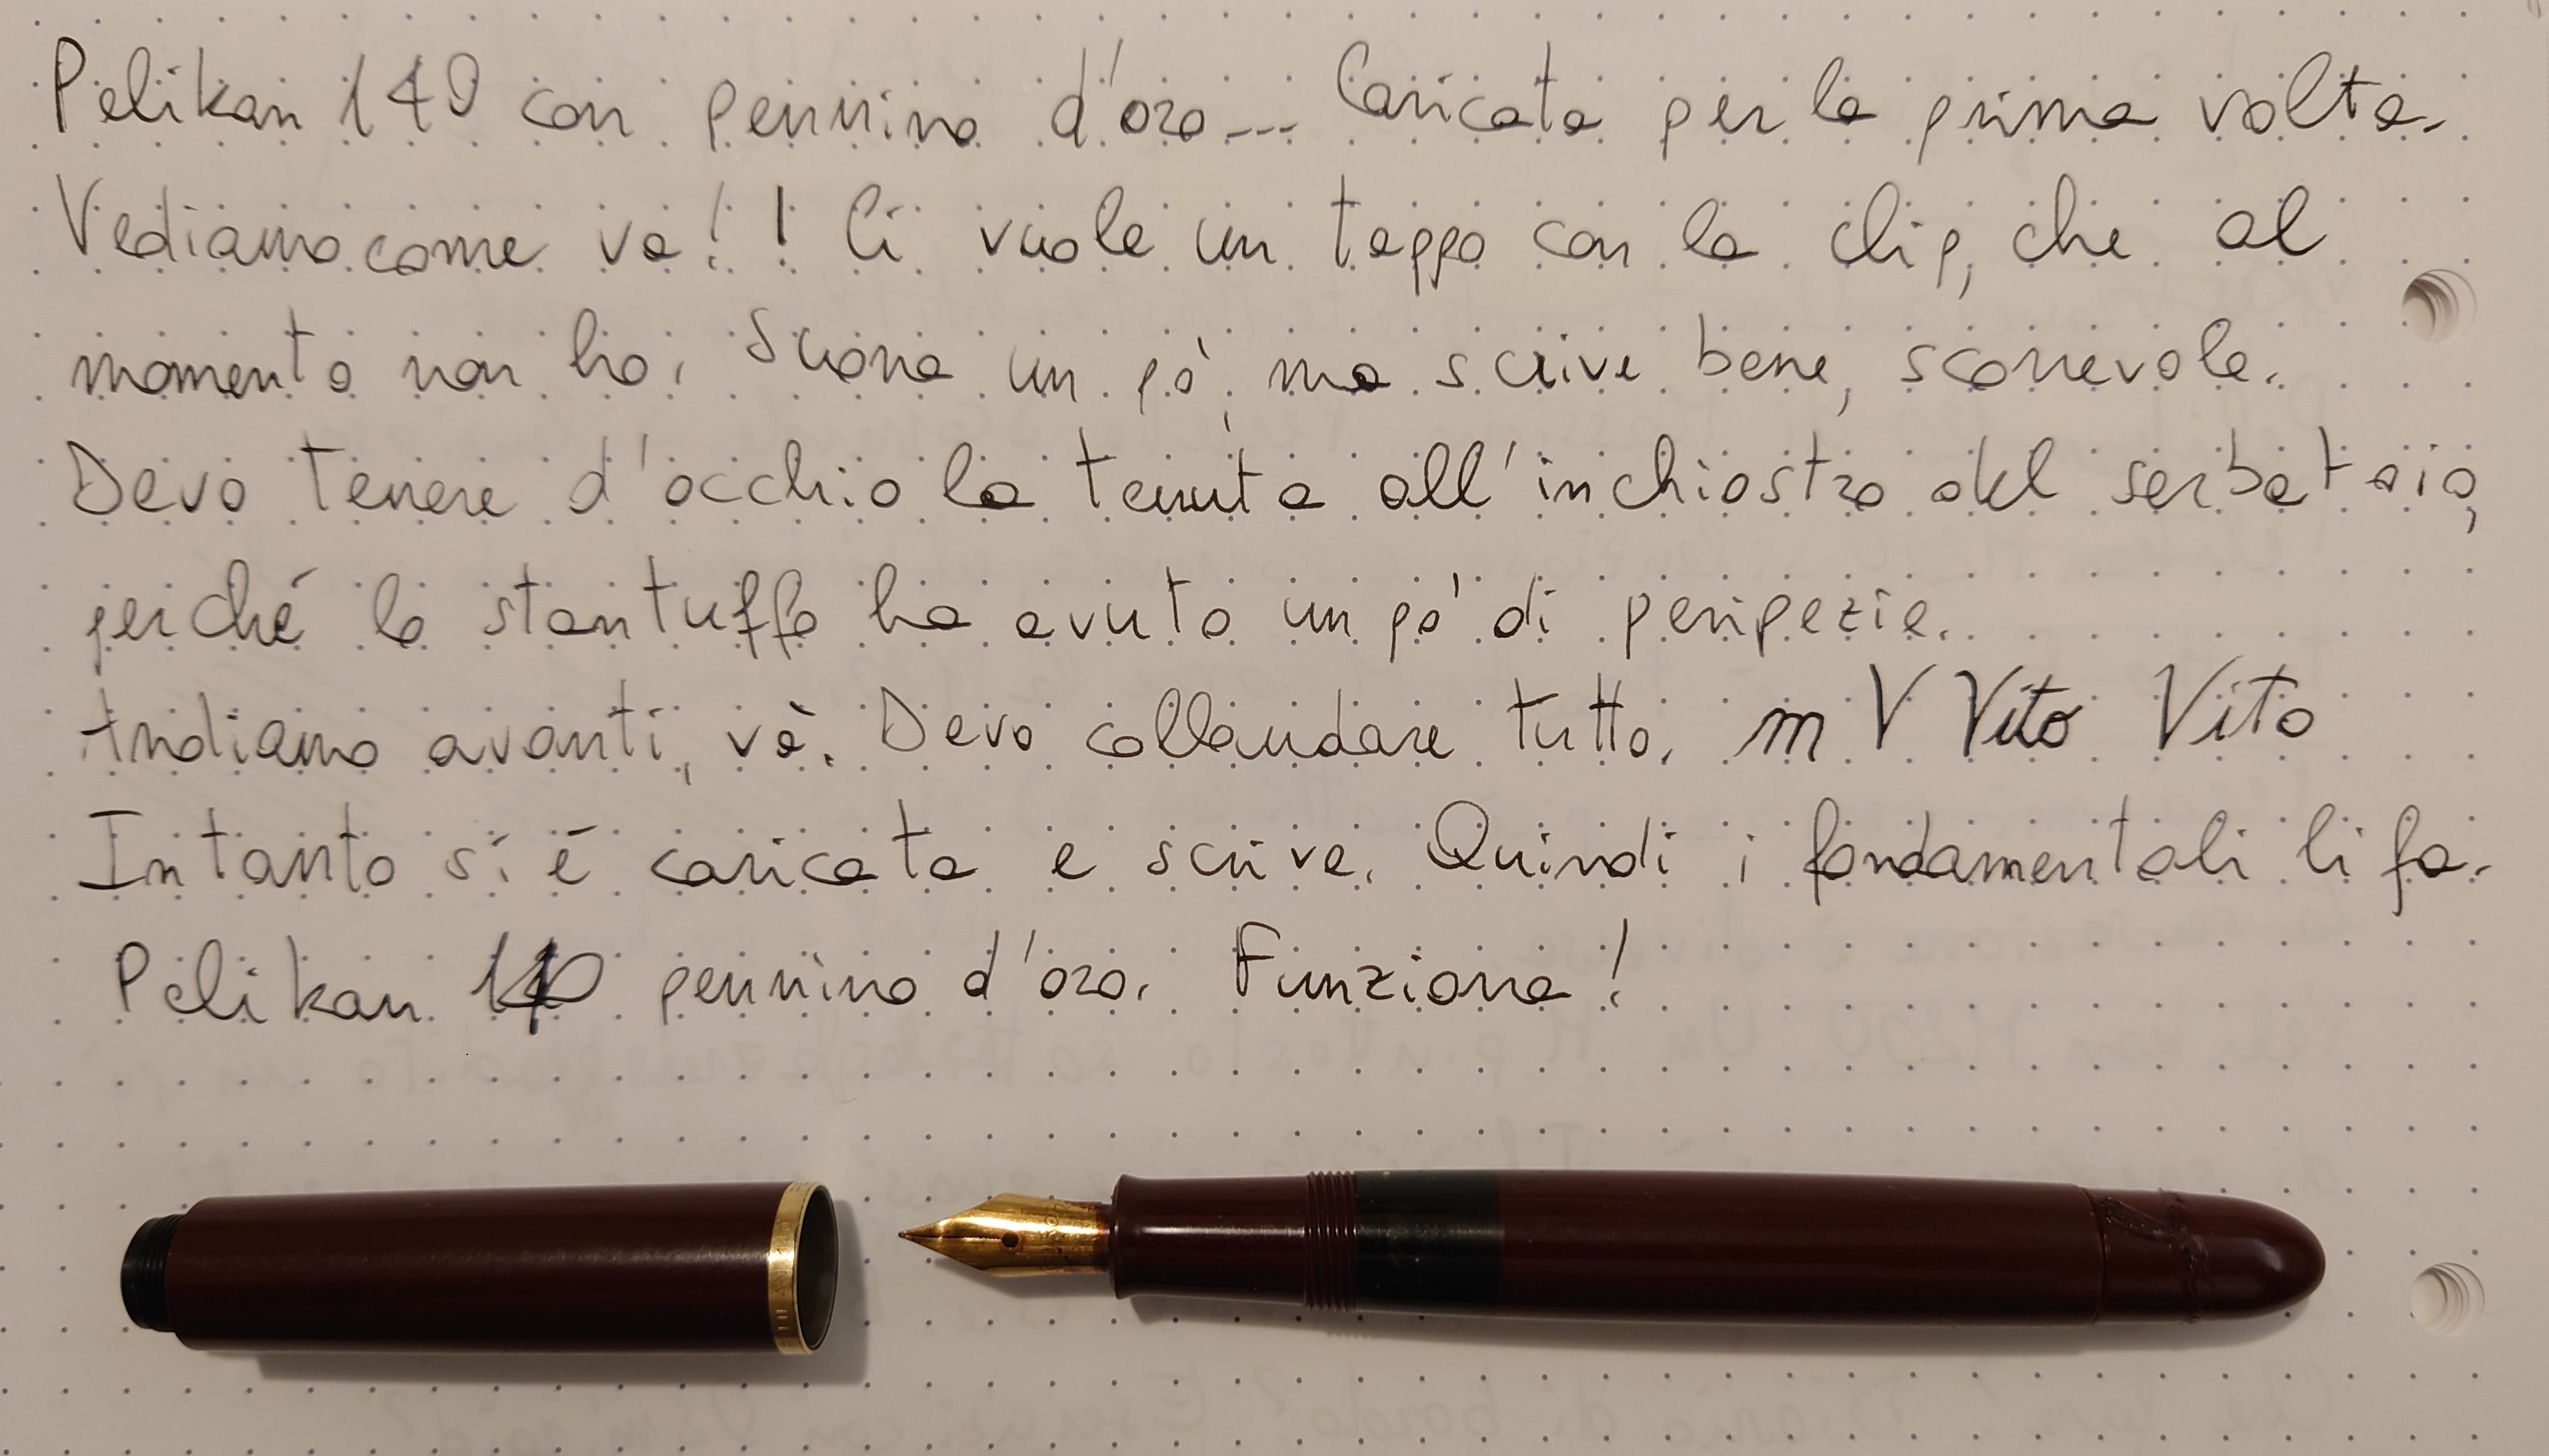 Pelikan 140 con pennino d'oro... Caricata per la prima volta.
Vediamo come va!! Ci vuole un tappo con la clip, che al
momento non ho. Suona un pò, ma scrive bene, scorrevole.
Devo tenere d'occhio la tenuta all'inchiostro del serbatoio,
perché lo stantuffo ha avuto un pò di peripezie.
Andiamo avanti, và. Devo collaudare tutto. m V Vito Vito
Intanto si è caricata e scrive. Quindi i fondamentali li fa.
Pelikan 140 pennino d'oro. Funziona!